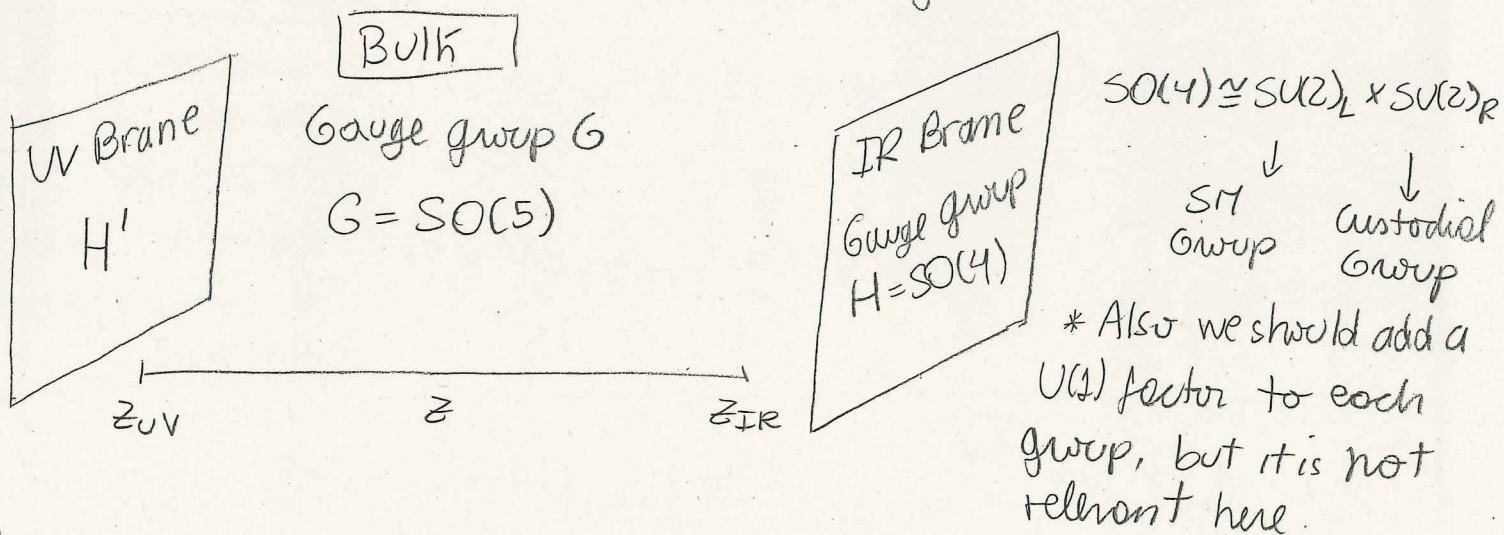 Bulk
UV Brane
H'
Gauge group G
G = SO(5)
IR Brane
Gauge group
H = SO(4)
z_UV
z
z_IR
SO(4) ≅ SU(2)_L × SU(2)_R
↓ ↓
SM Custodial
Group Group
* Also we should add a
U(1) factor to each
group, but it is not
relevant here.